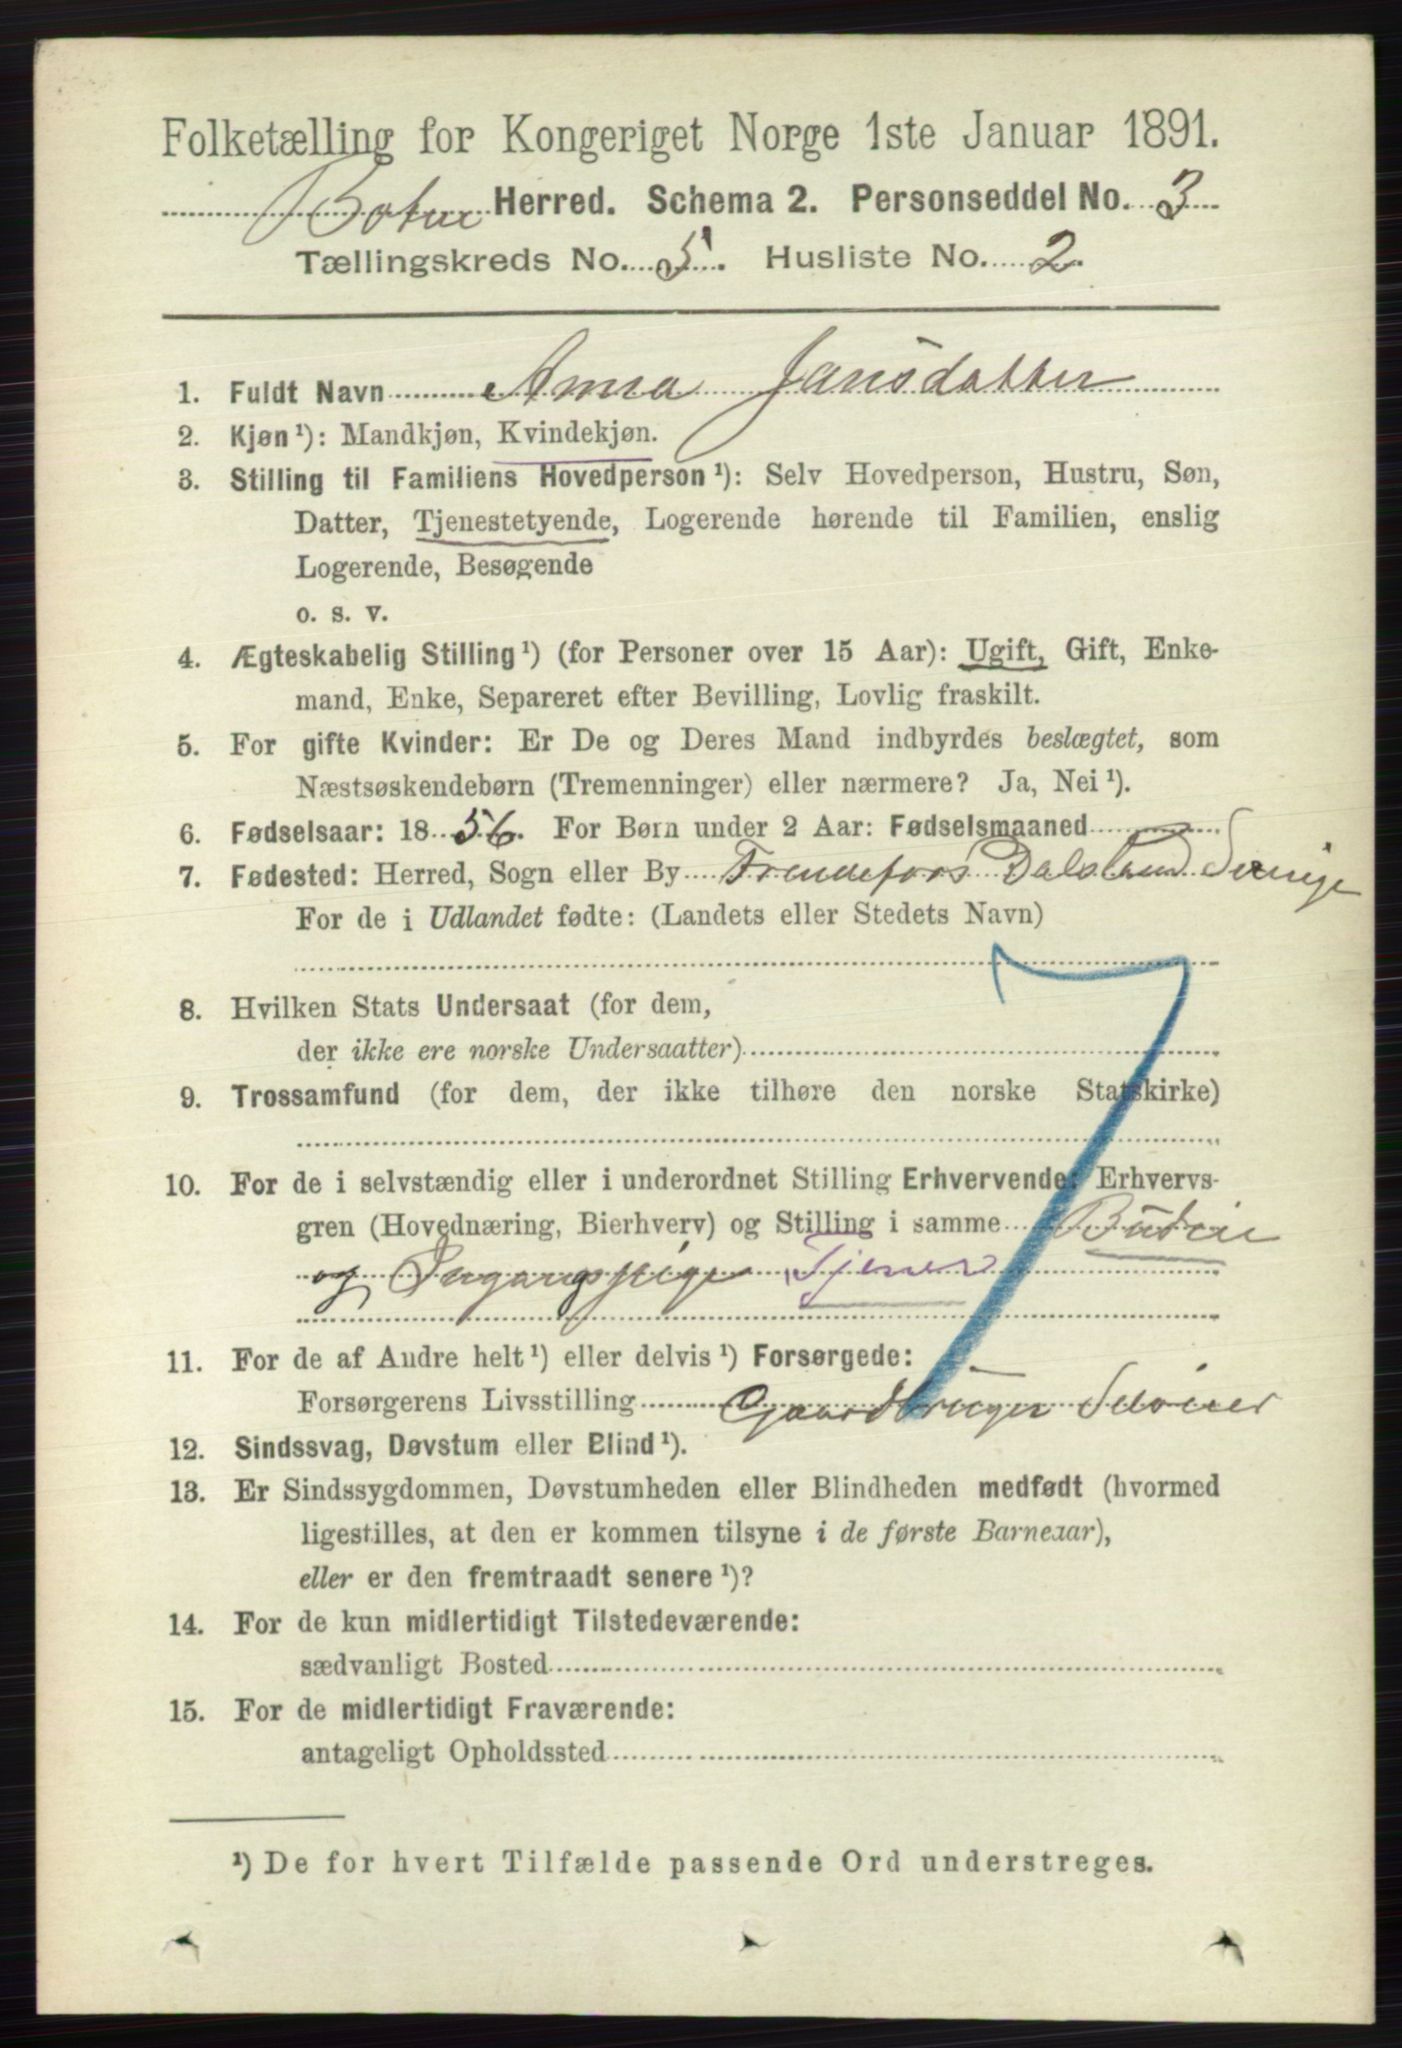 Folketælling for Kongeriget Norge 1ste Januar 1891.
Botne Herred. Schema 2. Personseddel No. 3
Tællingskreds No. 5. Husliste No. 2.
1. Fuldt Navn Anna Jansdatter
2. Kjøn ¹): Mandkjøn, Kvindekjøn.
3. Stilling til Familiens Hovedperson ¹): Selv Hovedperson, Hustru, Søn,
Datter, Tjenestetyende, Logerende hørende til Familien, enslig
Logerende, Besøgende
o. s. v.
4. Ægteskabelig Stilling ¹) (for Personer over 15 Aar): Ugift, Gift, Enke-
mand, Enke, Separeret efter Bevilling, Lovlig fraskilt.
5. For gifte Kvinder: Er De og Deres Mand indbyrdes beslægtet, som
Næstsøskendebørn (Tremenninger) eller nærmere? Ja, Nei ¹).
6. Fødselsaar: 1856. For Børn under 2 Aar: Fødselsmaaned
7. Fødested: Herred, Sogn eller By Dalsland Sverige
For de i Udlandet fødte: (Landets eller Stedets Navn)
8. Hvilken Stats Undersaat (for dem,
der ikke ere norske Undersaatter)
9. Trossamfund (for dem, der ikke tilhøre den norske Statskirke)
10. For de i selvstændig eller i underordnet Stilling Erhvervende: Erhvervs-
gren (Hovednæring, Bierhverv) og Stilling i samme
og Tjener
7
11. For de af Andre helt ¹) eller delvis ¹) Forsørgede:
Forsørgerens Livsstilling Gaardbruger Selveier
12. Sindssvag, Døvstum eller Blind ¹).
13. Er Sindssygdommen, Døvstumheden eller Blindheden medfødt (hvormed
ligestilles, at den er kommen tilsyne i de første Barneaar),
eller er den fremtraadt senere ¹)?
14. For de kun midlertidigt Tilstedeværende:
sædvanligt Bosted
15. For de midlertidigt Fraværende:
antageligt Opholdssted
¹) De for hvert Tilfælde passende Ord understreges.